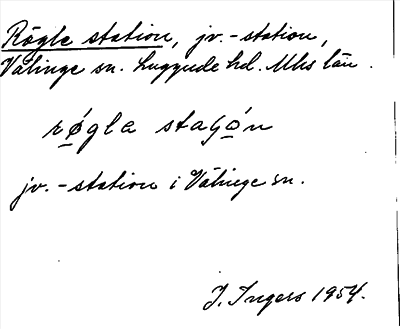 Rögle station, jv.-station,
Välinge sn. Luggude hd. Mhs län.
rø̱gla staʃó̱n
jv.-station i Välinge sn.
I. Ingers 1954.